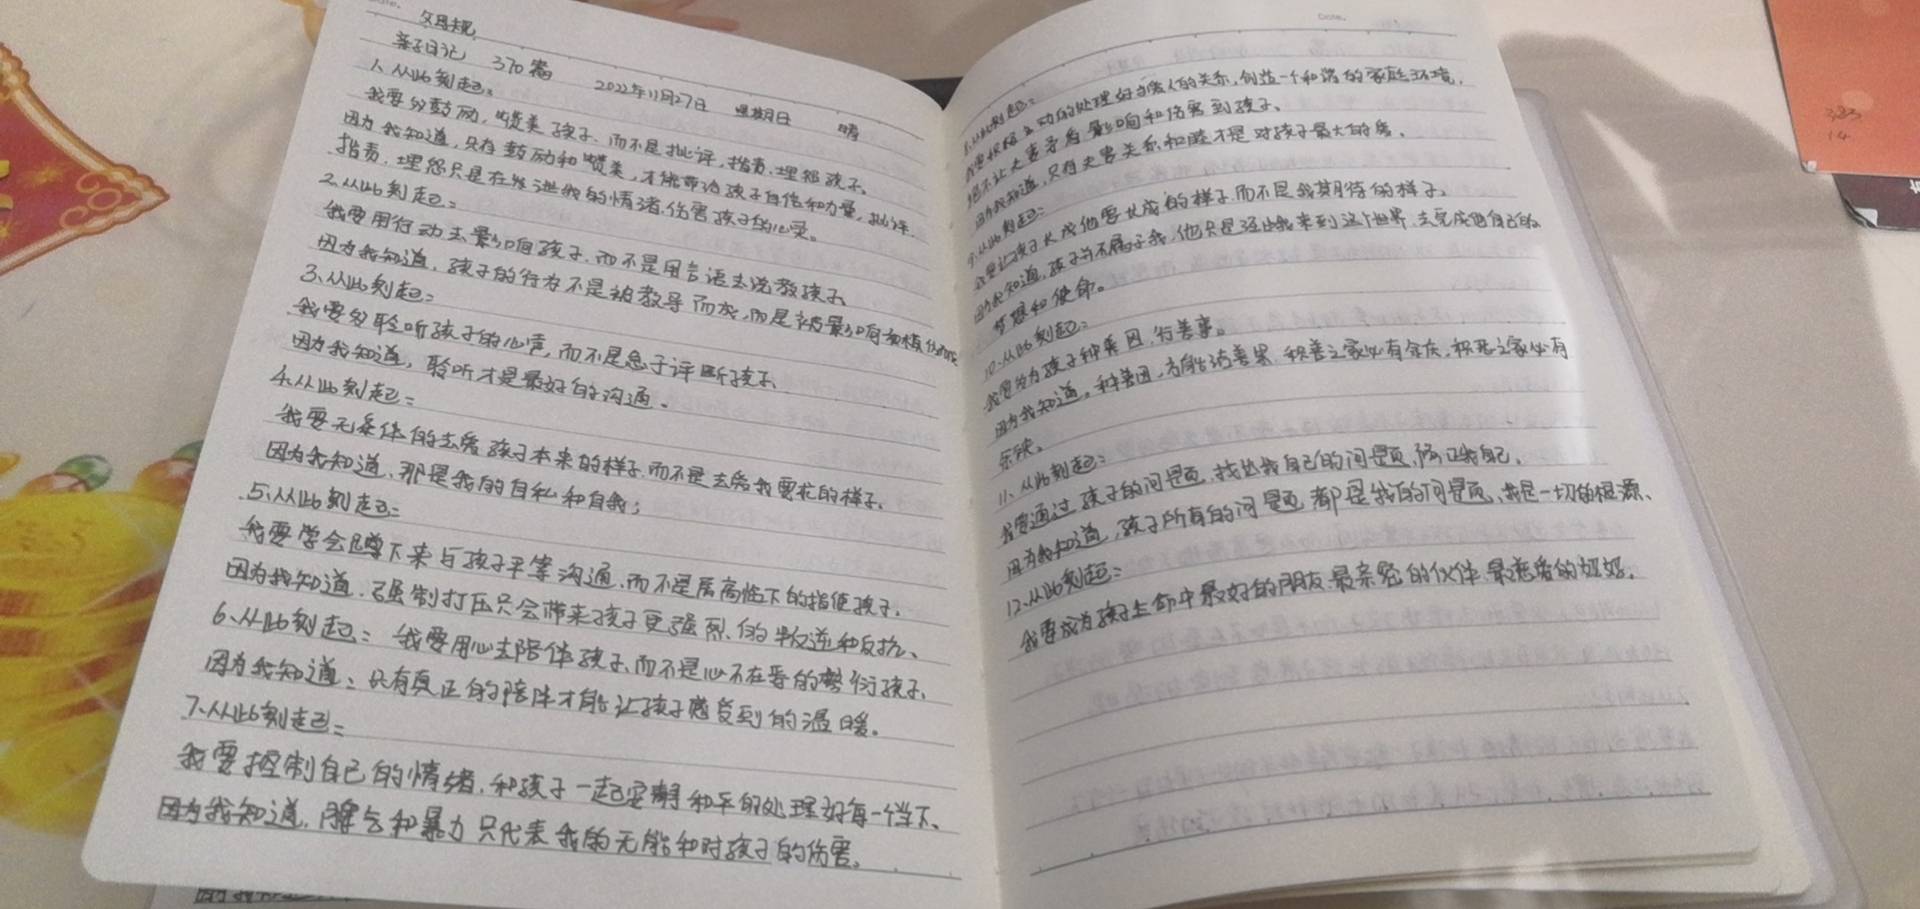 父母规
亲子日记 370篇 2022年11月27日 星期日 晴
1、从此刻起:
我要多鼓励,赞美孩子,而不是批评,指责,埋怨孩子、
因为我知道,只有鼓励和赞美,才能带给孩子自信和力量,批评、
指责、埋怨只是在发泄我的情绪,伤害孩子的心灵。
2、从此刻起:
我要用行动去影响孩子,而不是用言语去说教孩子、
因为我知道,孩子的行为不是被教导而成,而是被影响和模仿而成
3、从此刻起:
我要多聆听孩子的心声,而不是急于评断孩子、
因为我知道,聆听才是最好的沟通。
4、从此刻起:
我要无条件的去爱孩子本来的样子,而不是去爱我要求的样子、
因为我知道,那是我的自私和自我;
5、从此刻起:
我要学会蹲下来与孩子平等沟通,而不是居高临下的指使孩子、
因为我知道,强制打压只会带来孩子更强烈的叛逆和反抗、
6、从此刻起:我要用心去陪伴孩子,而不是心不在焉的敷衍孩子、
因为我知道:只有真正的陪伴才能让孩子感受到的温暖。
7、从此刻起:
我要控制自己的情绪,和孩子一起安静和平的处理好每一个当下、
因为我知道,脾气和暴力只代表我的无能和对孩子的伤害。
8、从此刻起:
我要积极主动的处理好与家人的关系,创造一个和谐的家庭环境,
绝不让夫妻矛盾影响和伤害到孩子、
因为我知道,只有夫妻关系和睦才是对孩子最大的爱、
9、从此刻起:
我要让孩子长成他要长成的样子,而不是我期待的样子、
因为我知道,孩子并不属于我,他只是经由我来到这个世界,去完成他自己的
梦想和使命。
10、从此刻起:
我要为孩子种善因,行善事。
因为我知道,种善因,方能结善果,积善之家必有余庆,积恶之家必有
余殃、
11、从此刻起:
我要通过孩子的问题,找出我自己的问题,修正我自己、
因为我知道,孩子所有的问题,都是我的问题、我是一切的根源、
12、从此刻起:
我要成为孩子生命中最好的朋友、最亲密的伙伴、最慈爱的妈妈,
383
14